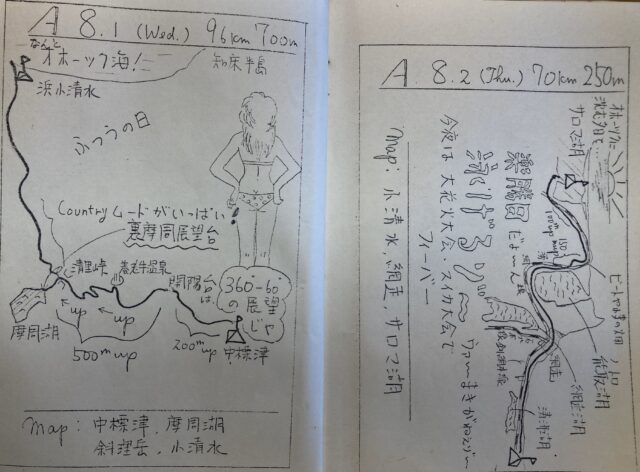 A 8.1 (Wed.) 96km 700m
なんと
オホーツク海!
知床半島
浜小清水
ふつうの日
Countryムードがいっぱい
裏摩周展望台
清里峠
養老牛温泉
開陽台
は、
360°-60°
の展望
じゃ
摩周湖
up
up
500m up
200m up
中標津
Map: 中標津、摩周湖
斜里岳、小清水
A. 8.2 (Thu.) 70km 250m
オホーツクに
サロマ湖
100m up
楽勝日だよーん
泳げるりー
今夜は大花火大会・スイカ大会で
フィーバー
Map: 小清水,網走,サロマ湖
能取湖
網走湖
網走
濤沸湖